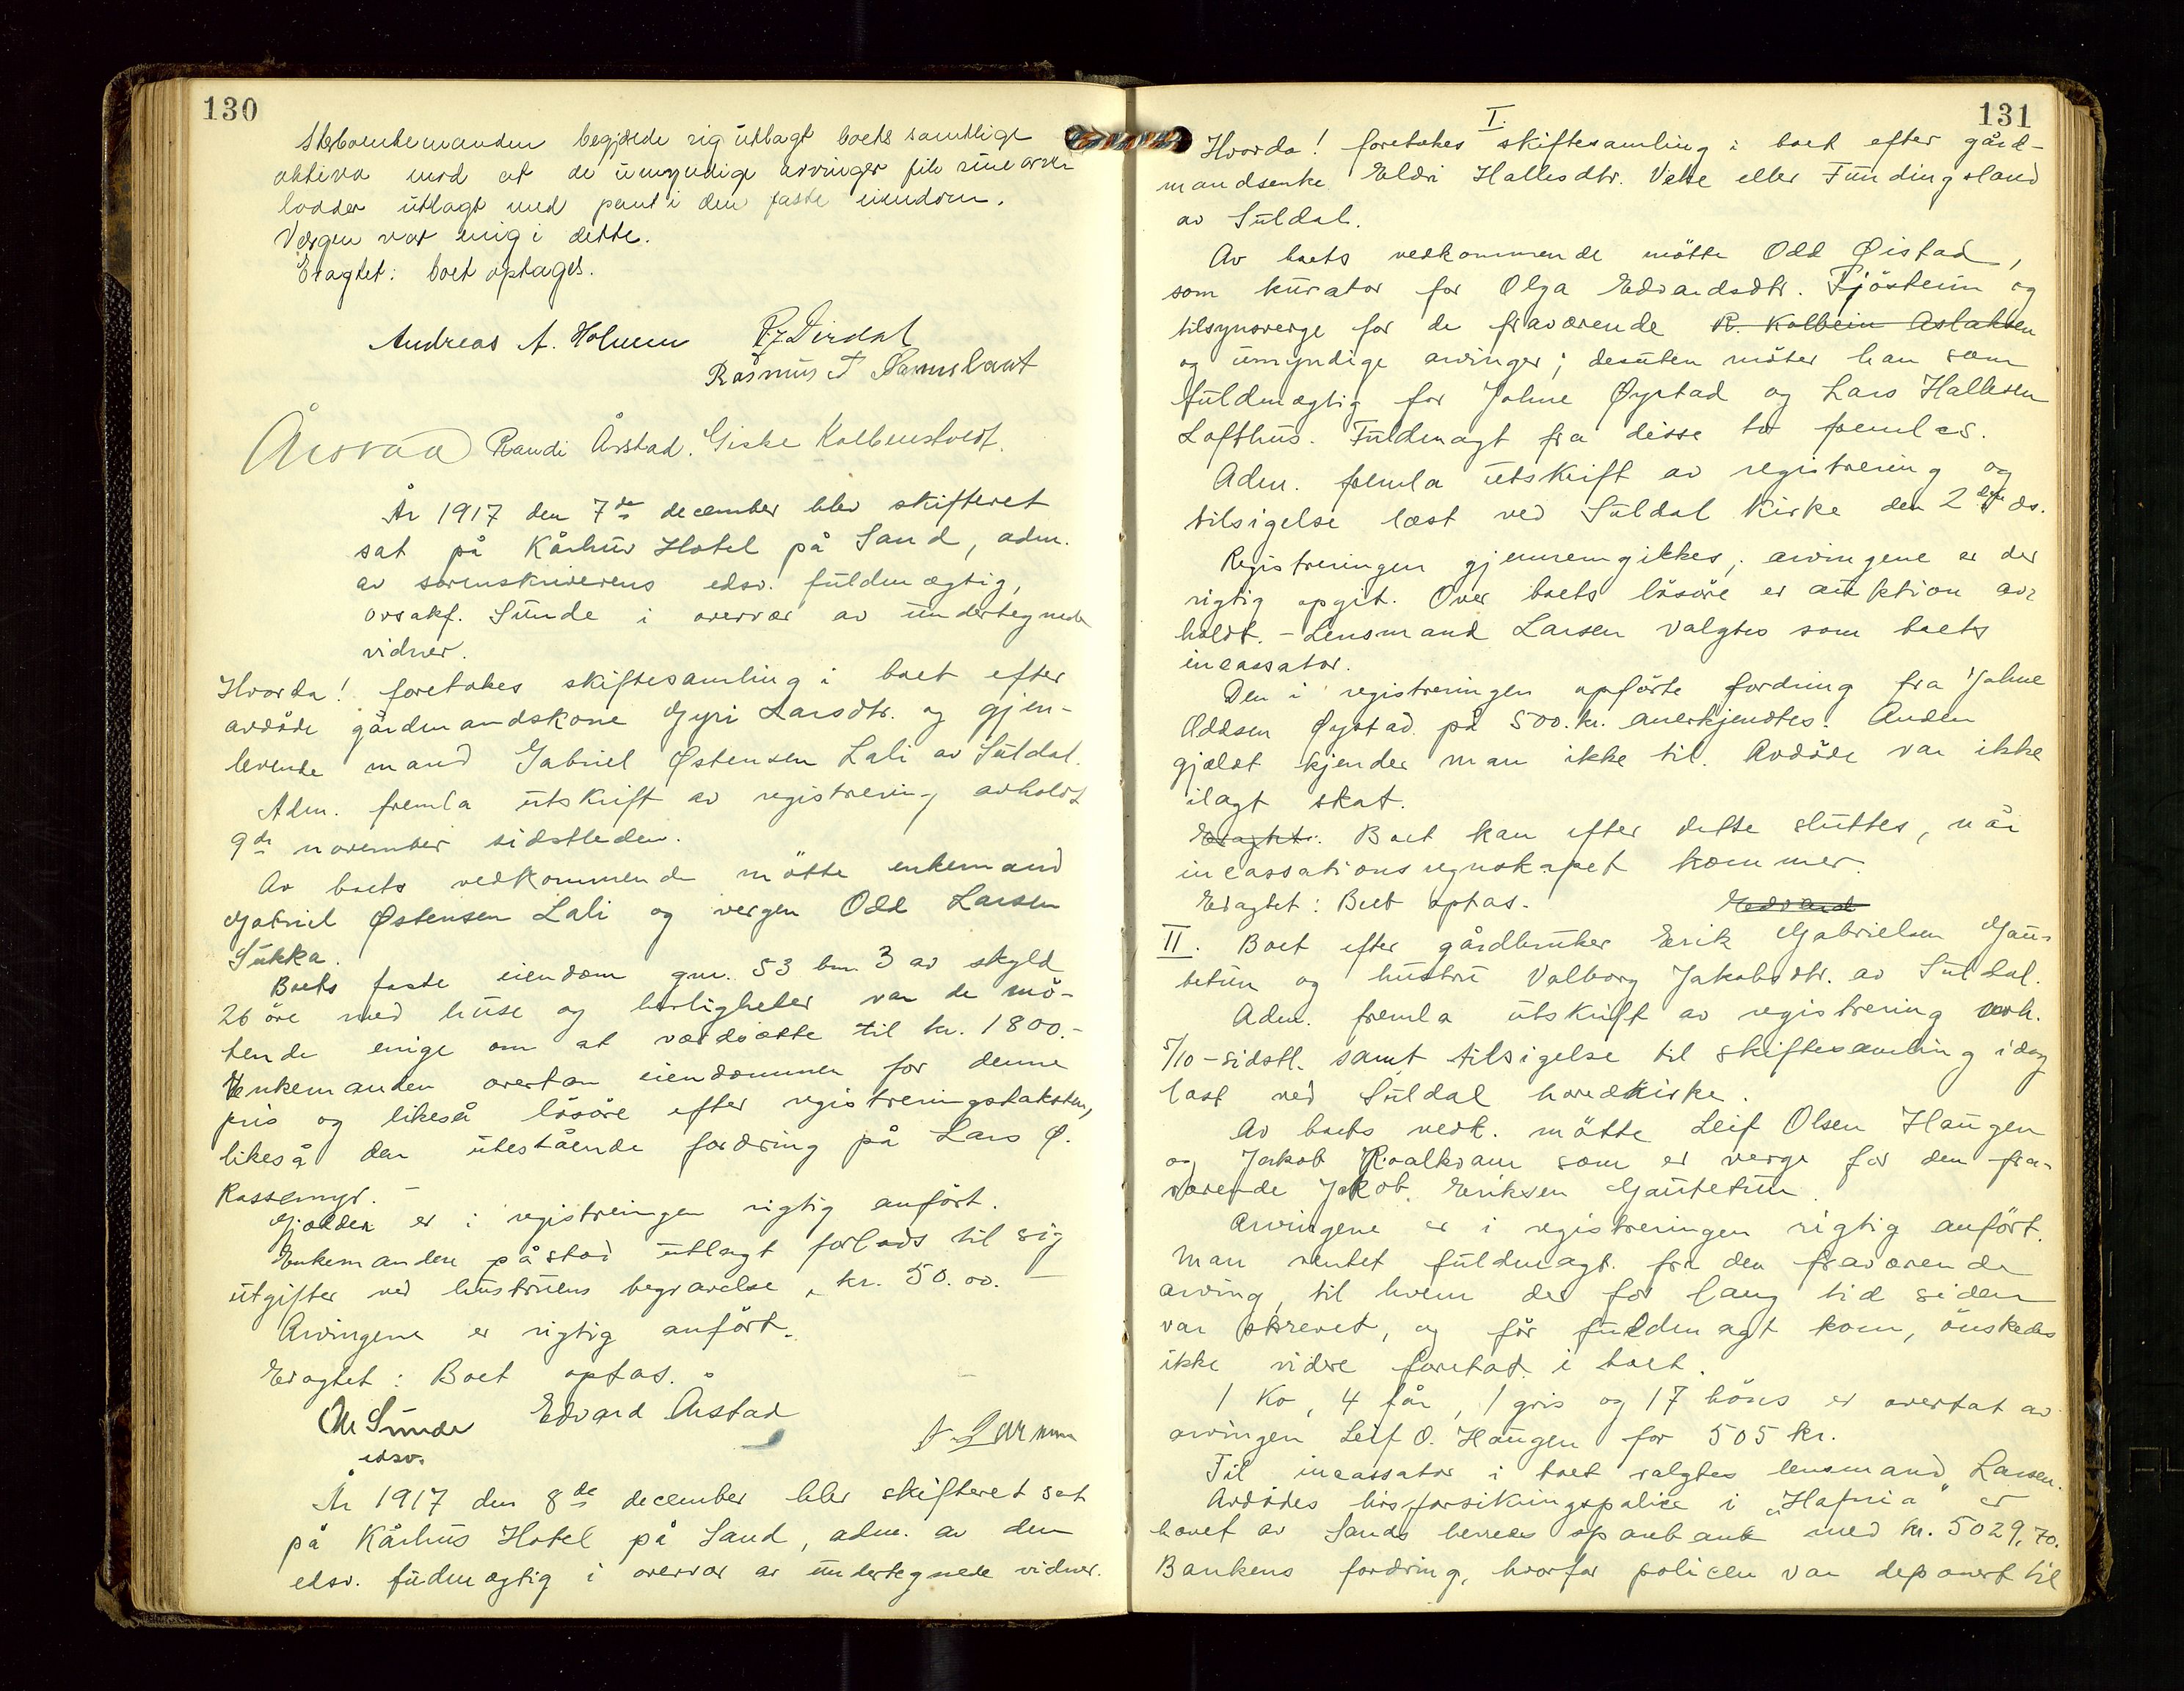 130
Sterboenkemanden begjærde sig utlagt boets samtlige
aktiva mod at de umyndige arvinger fik sine arve
lodder utlagt med pant i den faste eiendom.
Værgen var enig i dette.
Eragtet: boet optages.
Andreas A. Holmen
Rasmus T
Randi Årstad. Giske
År 1917 den 7de december blev skifteret
sat på Kårhus Hotel på Sand, adm.
av sorenskriverens edsv. fuldmægtig,
ovsakf. Sunde i overvær av undertegnede
vidner.
Hvorda! foretokes skiftesamling i boet efter
avdöde gårdmandskone Gyri Larsdtr. og gjen-
levende mand Gabriel Østensen Lali av Suldal.
Adm. fremla utskrift av registrering avholdt
9de november sidstleden.
Av boets vedkommende mötte enkemand
Gabriel Østensen Lali og vergen Odd Larsen
Sukka.
Boets faste eiendom gnr. 53 bnr 3 av skyld
26 öre med huse og herligheter var de mö-
tende enige om at værdsætte til kr. 1800.-
Enkemanden overtar eiendommen for denne
pris og likeså lösöre efter registreringstaksten,
likeså den utestående fordring på Lars Ø.
Rassemyr. -
Gjælden er i registreringen rigtig anfört.
Enkemanden påstod utlagt forlods til sig
utgifter ved hustruens begravelse, kr. 50.00. -
Arvingene er rigtig anfört.
Eragtet: Boet optas.
Sunde Edvard Årstad
edsv.
År 1917 den 8de december blev skifteret sat
på Kårhus Hotel på Sand, adm. av den
edsv. fudmægtig i overvær av undertegnede vidner.
131
I.
Hvorda! foretokes skiftesamling i boet efter gård-
mandsenke Eldri Hallesdtr. Vetle eller Fundingsland
av Suldal.
Av boets vedkommende mötte Odd Øistad,
som kurator for Olga Edvardsdtr. Tjösteim og
tilsynsverge for de fraværende R. Kolbein Aslaksen
og umyndige arvinger; desuten möter han som
fuldmægtig for Johne Øystad og Lars Hallesen
Lofthus. Fuldmagt fra disse to fremlæs.
Adm. fremla utskrift av registrering og
tilsigelse læst ved Suldal Kirke den 2den ds.
Registreringen gjennemgikkes, arvingene er der
rigtig opgit. Over boets lösöre er auktion av-
holdt. - Lensmand Larsen valgtes som boets
incassator.
Den i registreringen opförte fordring fra Johne
Oddsen Øystad på 500. kr. anerkjendtes. Anden
gjæld kjender man ikke til. Avdöde var ikke
ilagt skat.
Eragtet: Boet kan efter dette sluttes, når
incassationsregnskapet kommer.
Eragtet: Boet optas. Edvard
II. Boet efter gårdbruker Erik Gabrielsen Gau-
tetun og hustru Valborg Jakobsdtr. av Suldal.
Adm. fremla utskrift av registrering avh.
5/10 - sidstl. samt tilsigelse til skiftesamling idag
læst ved Suldal hovedkirke.
Av boets vedk. mötte Leif Olsen Haugen
og Jakob Roalkvam som er verge for den fra-
værende Jakob Eriksen Gautetun.
Arvingene er i registreringen rigtig anfört.
Man ventet fuldmagt fra den fraværende
arving, til hvem der for lang tid siden
var skrevet, og för fuldmagt kom, önskedes
ikke videre foretat i boet.
1 Ko, 4 får, 1 gris og 17 höns er overtat av
arvingen Leif O. Haugen for 505 kr.
Til incassator i boet valgtes lensmand Larsen.
Avdödes livsforsikringspolice i "Hafnia" er
hævet av Sands herreds sparebank med kr. 5029,70.
Bankens fordring, hvorfor policen var deponert til